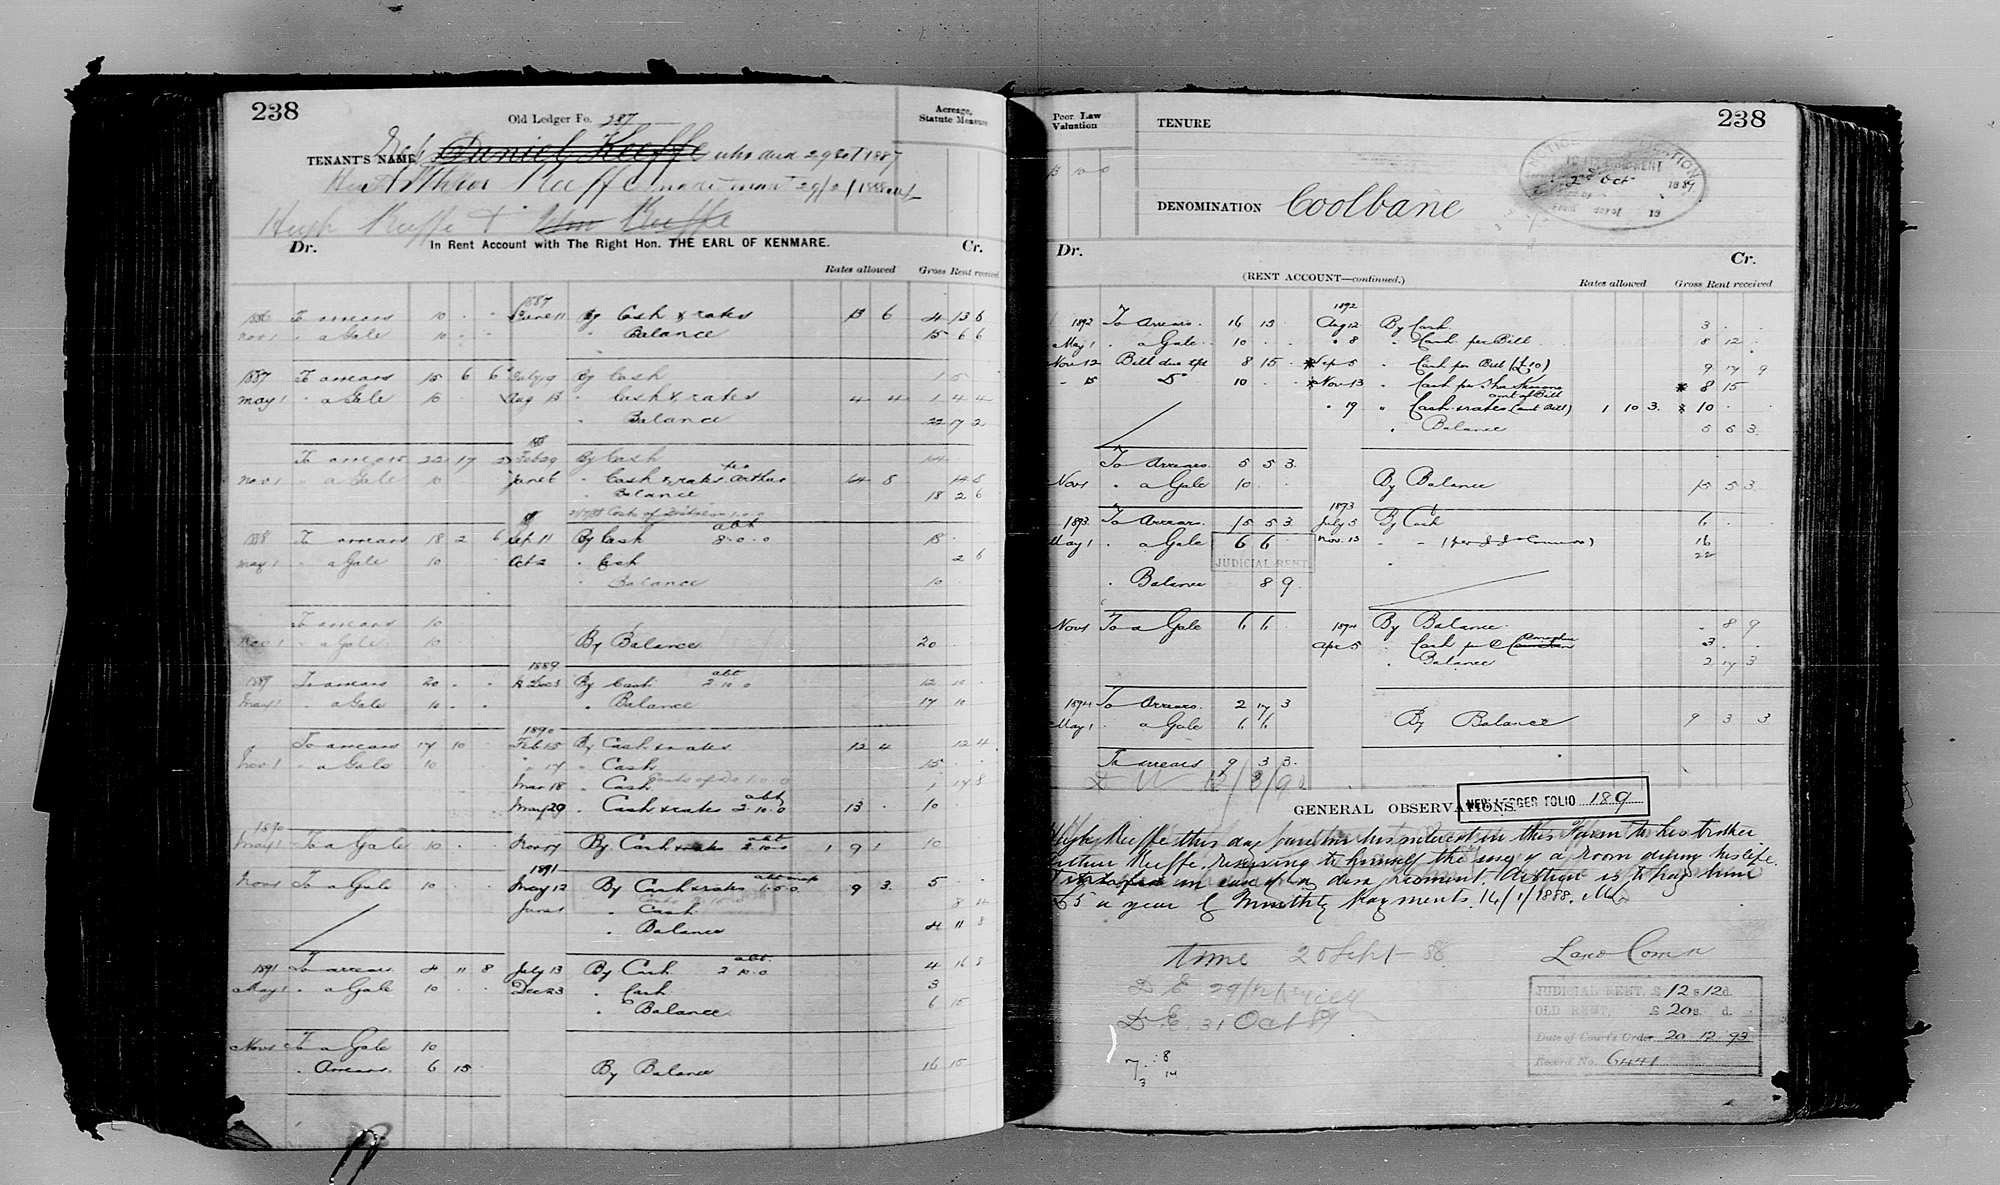 238
Old Ledger Fo. 287
Acreage,
Statute Measure
TENANT'S NAME Daniel Keeffe who died 29 Oct 1887
Arthur Keeffe
Hugh Keeffe & Wm Keeffe
Dr. In Rent Account with The Right Hon. THE EARL OF KENMARE. Cr.
Rates allowed Gross Rent received
1887
1886 To arrears 10 . . June 11 By Cash & rates 13 6 4 13 6
Nov 1 " a Gale 10 . . " Balance 15 6 6
1887 To arrears 15 6 6 July 9 By Cash 1 5
May 1 " a Gale 10 . . Aug 13 " Cash & rates 4 4 1 4 4
" Balance 22 17 2
To arrears 22 17 2 Feb 29 By Cash 14
Nov 1 " a Gale 10 June 6 " Cash & rates per Arthur 14 8 14 8
" Balance 18 2 6
1888 To arrears 18 2 6 Sep 11 By Cash abt 8.0.0 18 .
May 1 " a Gale 10 Oct 2 " Cash 2 6
" Balance 10
To arrears 10
Nov 1 " a Gale 10 By Balance 20
1889
1889 To arrears 20 . . Dec 3 By Cash abt 2.10.0 12 10 .
May 1 " a Gale 10 . . " Balance 17 10
1890
To arrears 17 10 Feb 15 By Cash & rates 12 4 12 4
Nov 1 " a Gale 10 " 17 " Cash 15 .
Mar 18 " Cash 1 17 8
May 29 " Cash & rates abt 2.10.0 13 . 10
1890
May 1 To a Gale 10 . . Nov 7 By Cash & rates abt 2.10.0 1 9 1 10
1891
Nov 1 To a Gale 10 . . May 12 By Cash & rates 1.5.0 9 3 5 . .
June 1 " Cash 8 4
" Balance 4 11 8
1891 To arrears 4 11 8 July 13 By Cash abt 2.10.0 4 16 8
May 1 " a Gale 10 . . Dec 23 " Cash 3
" Balance 6 15
Nov 1 To a Gale 10
" Arrears 6 15 By Balance 16 15
Poor Law
Valuation
TENURE
238
DENOMINATION Coolbane
2nd Oct 1889
Dr. Cr.
(RENT ACCOUNT—continued.)
Rates allowed Gross Rent received
1892
1892 To Arrears 16 15 . Aug 12 By Cash 3 . .
May 1 " a Gale 10 . . " 8 " Cash per Bill 8 12 .
Nov 12 Bill due 8 15 . * Sep 5 " Cash per Bill (£10) 9 17 9
" 15 Do 10 . * Nov 13 " Cash per amt of Bill * 8 15
" 19 " Cash & rates (amt Bill) 1 10 3 10 . .
" Balance 5 5 3
To Arrears 5 5 3
Nov 1 " a Gale 10 . . By Balance 15 5 3
1893
1893 To Arrears 15 5 3 July 5 By Cash 6 . .
May 1 " a Gale 6 6 Nov. 13 16
JUDICIAL RENT 22
" Balance 8 9
Nov 1 To a Gale 6 6 1894 By Balance . 8 9
Apr 5 " Cash per C Donoghue 3 . .
" Balance 2 17 3
1894 To Arrears 2 17 3
May 1 " a Gale 6 6 By Balance 9 3 3
To arrears 9 3 3
GENERAL OBSERVATIONS.
NEW LEDGER FOLIO 189
Hugh Keeffe this day his interest in this Farm to his brother
Arthur Keeffe, reserving to himself the use of a room during his life.
in case of any disagreement. Arthur is to pay him
£5 a year by Monthly payments. 14/1/1888.
time 20 Sept 88
Land Comn
D E 31 Oct 89
JUDICIAL RENT, £12 s12 d.
OLD RENT, £20 s. d.
Date of Court's Order 20.12.93
Record No. 6441